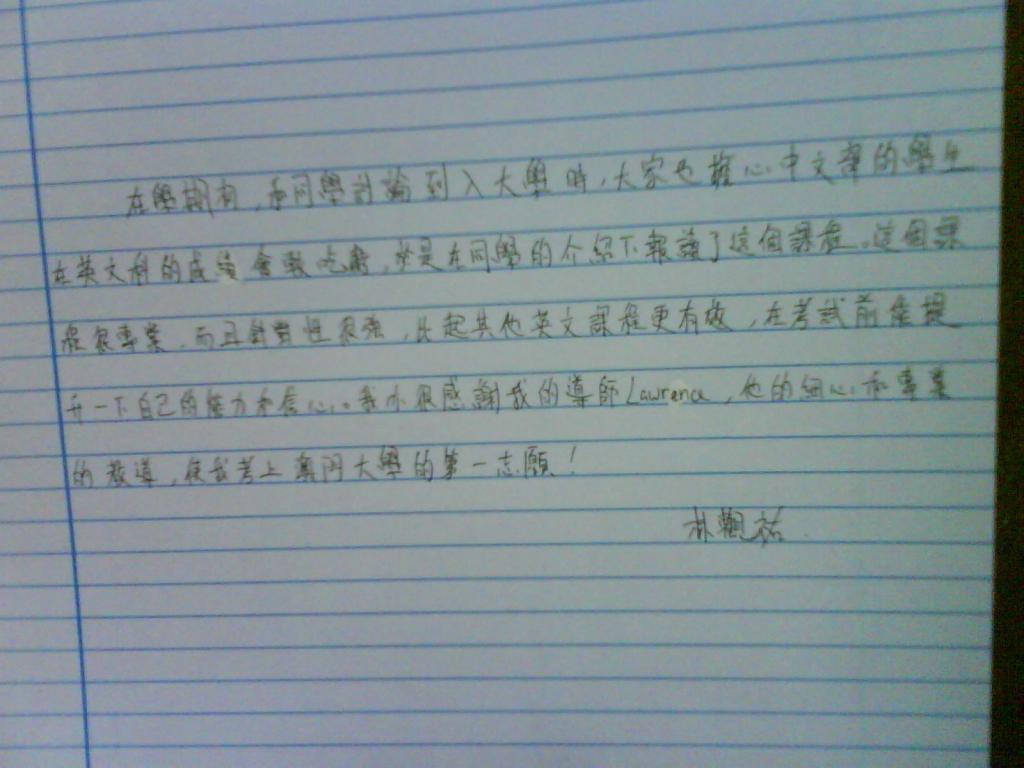 在學期間,和同學討論到入大學時,大家也擔心中文部的學生
在英文科的成績會較吃虧,於是在同學的介紹下報讀了這個課程。這個課
程很專業,而且針對性很強,比起其他英文課程更有效,在考試前能提
升一下自己的能力和信心。我亦很感謝我的導師Lawrence,他的細心和專業
的教導,使我考上澳門大學的第一志願!
林 祐